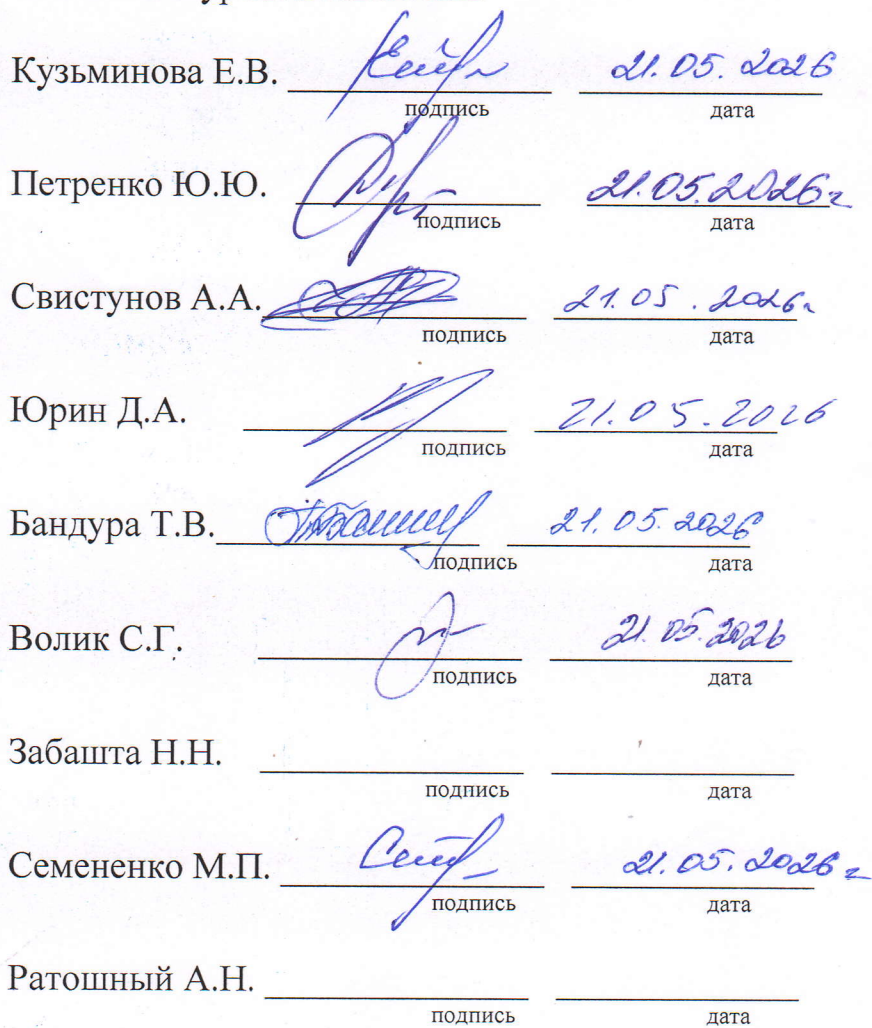 Кузьминова Е.В. 21.05.2026
подпись дата
Петренко Ю.Ю. 21.05.2026г
подпись дата
Свистунов А.А. 21.05.2026г
подпись дата
Юрин Д.А. 21.05.2026
подпись дата
Бандура Т.В. 21.05.2026
подпись дата
Волик С.Г. 21.05.2026
подпись дата
Забашта Н.Н.
подпись дата
Семененко М.П. 21.05.2026 г
подпись дата
Ратошный А.Н.
подпись дата